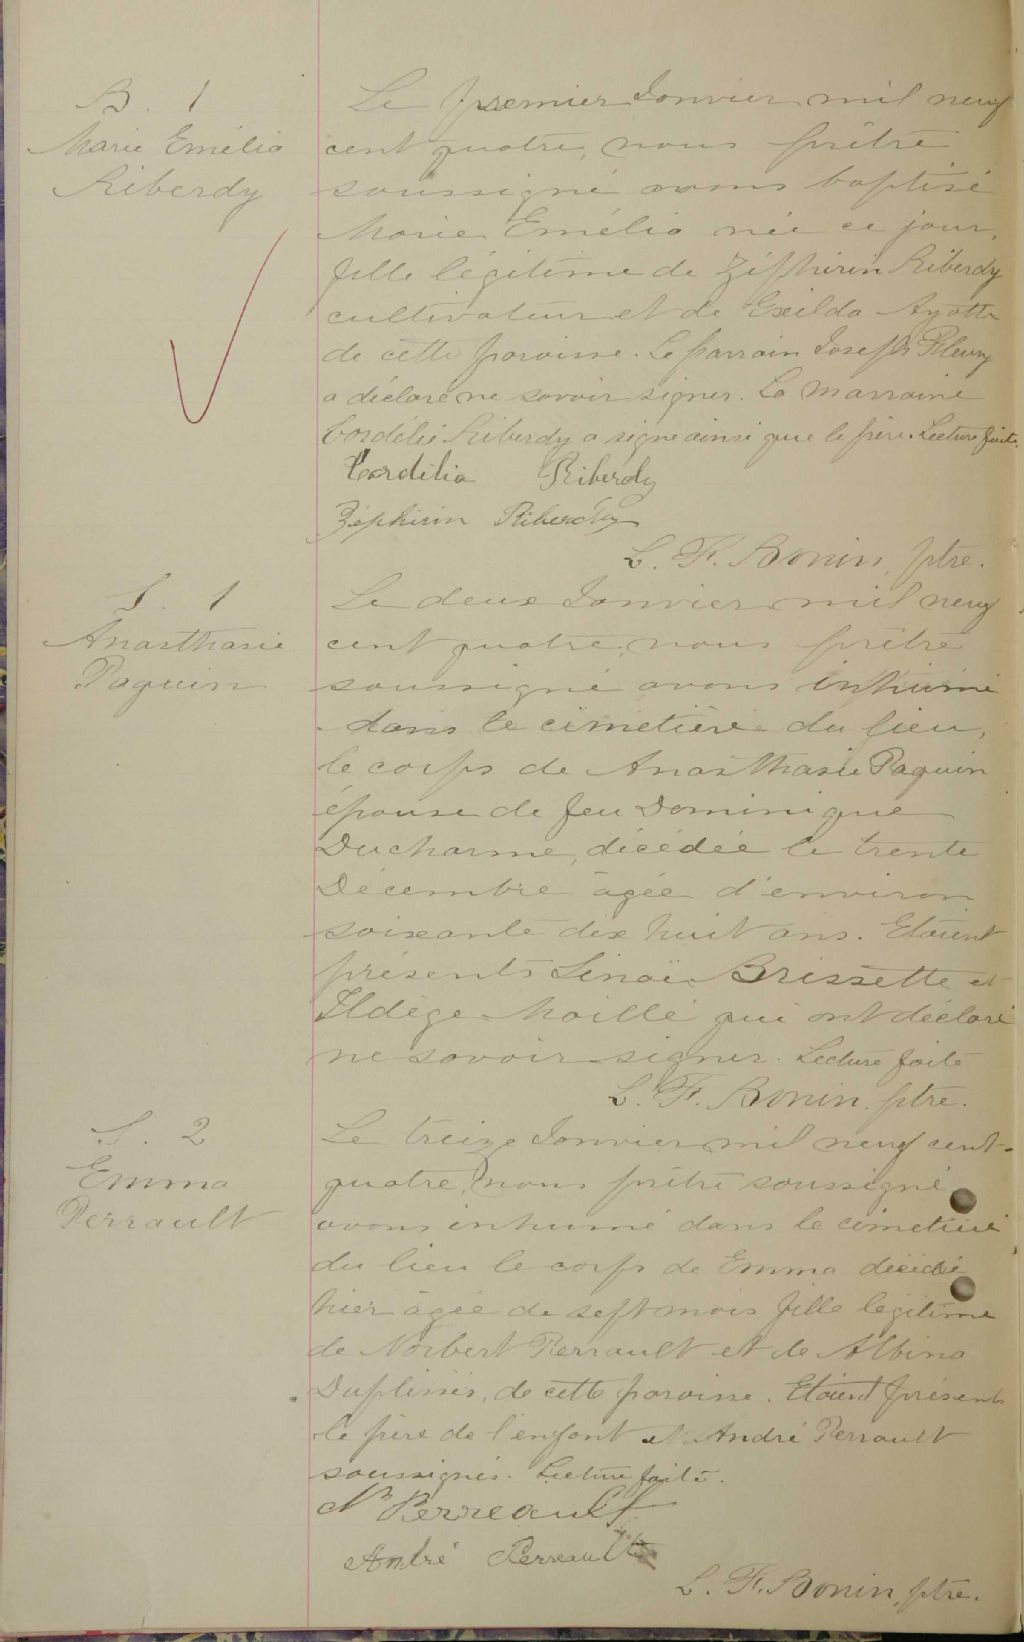 B. 1
Marie Emélia
Riberdy
Le premier Janvier mil neuf
cent quatre, nous prêtre
soussigné avons baptisé
Marie Emélia née ce jour,
fille légitime de Zéphirin Riberdy
cultivateur et de Exilda Ayotte
de cette paroisse. Le parrain Joseph Fleury
a déclaré ne savoir signer. La marraine
Cordélie Riberdy a signé ainsi que le père. Lecture faite.
Cordélia Riberdy
Zéphirin Riberdy
L. F. Bonin, ptre.
S. 1
Anasthasie
Paquin
Le deux Janvier mil neuf
cent quatre, nous prêtre
soussigné avons inhumé
dans le cimetière du lieu,
le corps de Anasthasie Paquin
épouse de feu Dominique
Ducharme, décédée le trente
Décembre âgée d'environ
soixante dix huit ans. Etaient
présents Sinaï Brissette et
Ildège Mailla qui ont déclaré
ne savoir signer. Lecture faite
L. F. Bonin, ptre.
S. 2
Emma
Perrault
Le treize Janvier mil neuf cent-
quatre, nous prêtre soussigné
avons inhumé dans le cimetière
du lieu le corps de Emma décédé
hier âgée de sept mois fille légitime
de Norbert Perrault et de Albina
Duplissis, de cette paroisse. Etaient présents
le père de l'enfant et André Perrault
soussignés. Lecture faite.
N Perreault
André Perreault
L. F. Bonin, ptre.